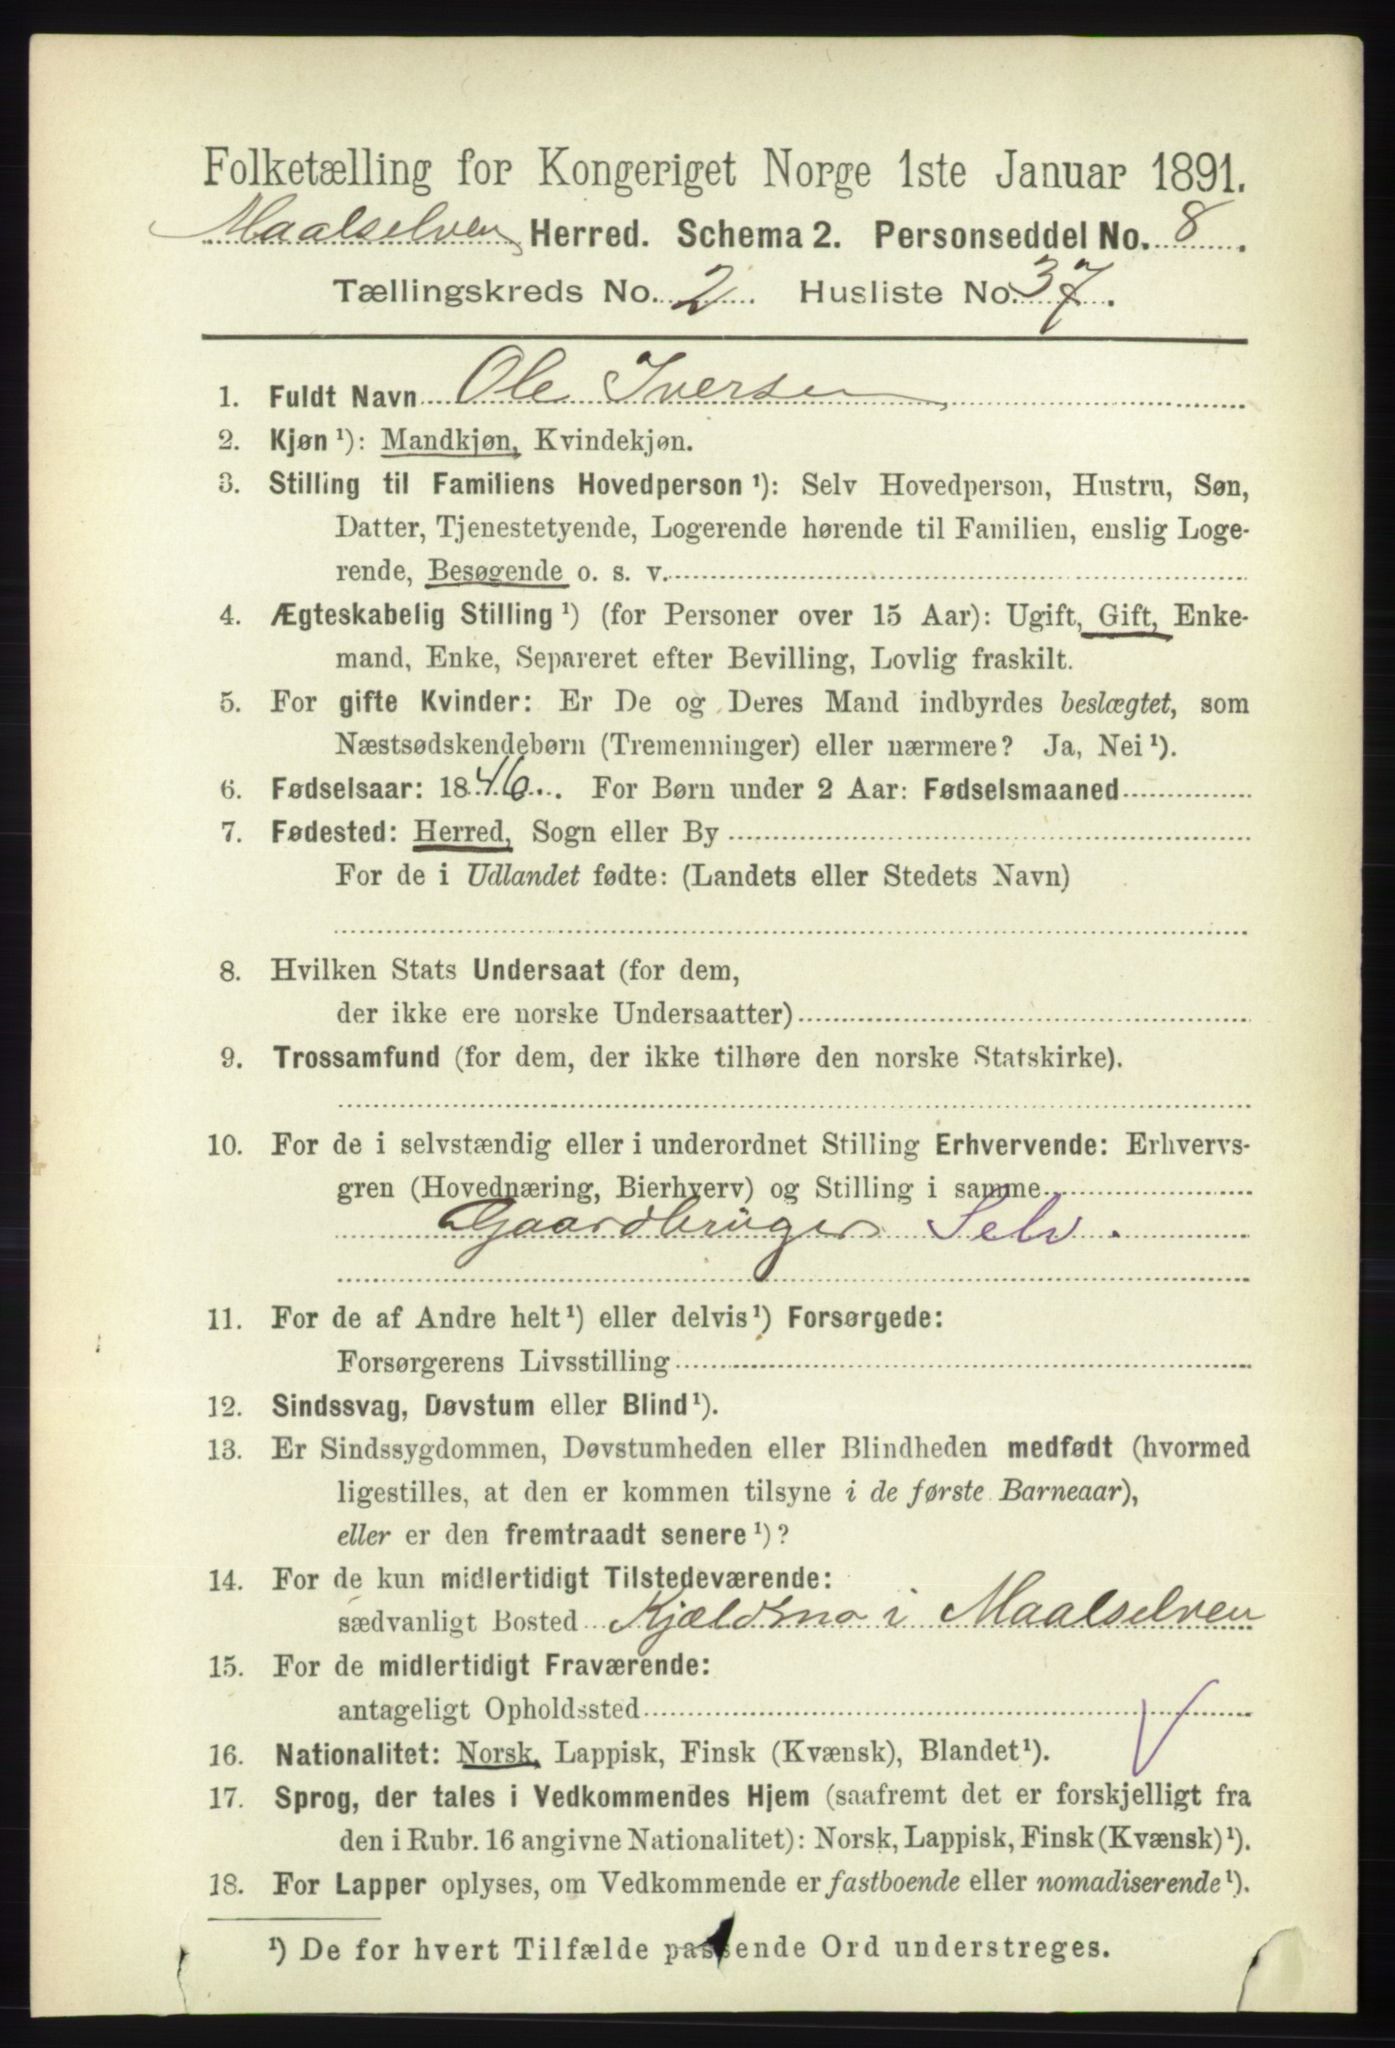 Folketælling for Kongeriget Norge 1ste Januar 1891.
Maalselven Herred. Schema 2. Personseddel No. 8.
Tællingskreds No. 2. Husliste No. 37.
1. Fuldt Navn Ole Iversen
2. Kjøn ¹): Mandkjøn, Kvindekjøn.
3. Stilling til Familiens Hovedperson ¹): Selv Hovedperson, Hustru, Søn,
Datter, Tjenestetyende, Logerende hørende til Familien, enslig Loge-
rende, Besøgende o. s. v.
4. Ægteskabelig Stilling ¹) (for Personer over 15 Aar): Ugift, Gift, Enke-
mand, Enke, Separeret efter Bevilling, Lovlig fraskilt.
5. For gifte Kvinder: Er De og Deres Mand indbyrdes beslægtet, som
Næstsødskendebørn (Tremenninger) eller nærmere? Ja, Nei ¹).
6. Fødselsaar: 1846. For Børn under 2 Aar: Fødselsmaaned
7. Fødested: Herred, Sogn eller By
For de i Udlandet fødte: (Landets eller Stedets Navn)
8. Hvilken Stats Undersaat (for dem,
der ikke ere norske Undersaatter)
9. Trossamfund (for dem, der ikke tilhøre den norske Statskirke).
10. For de i selvstændig eller i underordnet Stilling Erhvervende: Erhvervs-
gren (Hovednæring, Bierhverv) og Stilling i samme
Gaardbruger Selv.
11. For de af Andre helt ¹) eller delvis ¹) Forsørgede:
Forsørgerens Livsstilling
12. Sindssvag, Døvstum eller Blind ¹).
13. Er Sindssygdommen, Døvstumheden eller Blindheden medfødt (hvormed
ligestilles, at den er kommen tilsyne i de første Barneaar),
eller er den fremtraadt senere ¹)?
14. For de kun midlertidigt Tilstedeværende:
sædvanligt Bosted Kjældsmo i Maalselven
15. For de midlertidigt Fraværende:
antageligt Opholdssted
16. Nationalitet: Norsk, Lappisk, Finsk (Kvænsk), Blandet ¹).
17. Sprog, der tales i Vedkommendes Hjem (saafremt det er forskjelligt fra
den i Rubr. 16 angivne Nationalitet): Norsk, Lappisk, Finsk (Kvænsk) ¹).
18. For Lapper oplyses, om Vedkommende er fastboende eller nomadiserende ¹).
¹) De for hvert Tilfælde passende Ord understreges.